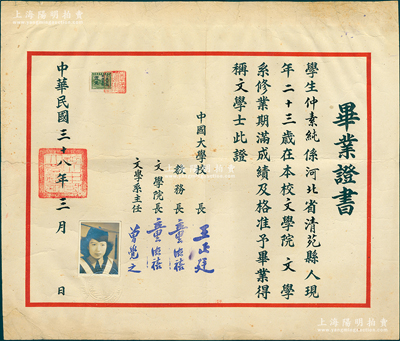 上海陽明拍賣
畢業證書
學生仲素純係河北省清苑縣人現
年二十三歲在本校文學院 文 學
系修業期滿成績及格准予畢業得
稱文學士此證
中國大學校 長 王正廷
教務長 童德禧
文學院長 童德禧
文學系主任 曾覺之
中華民國三十八年三月 日
上海陽明拍賣